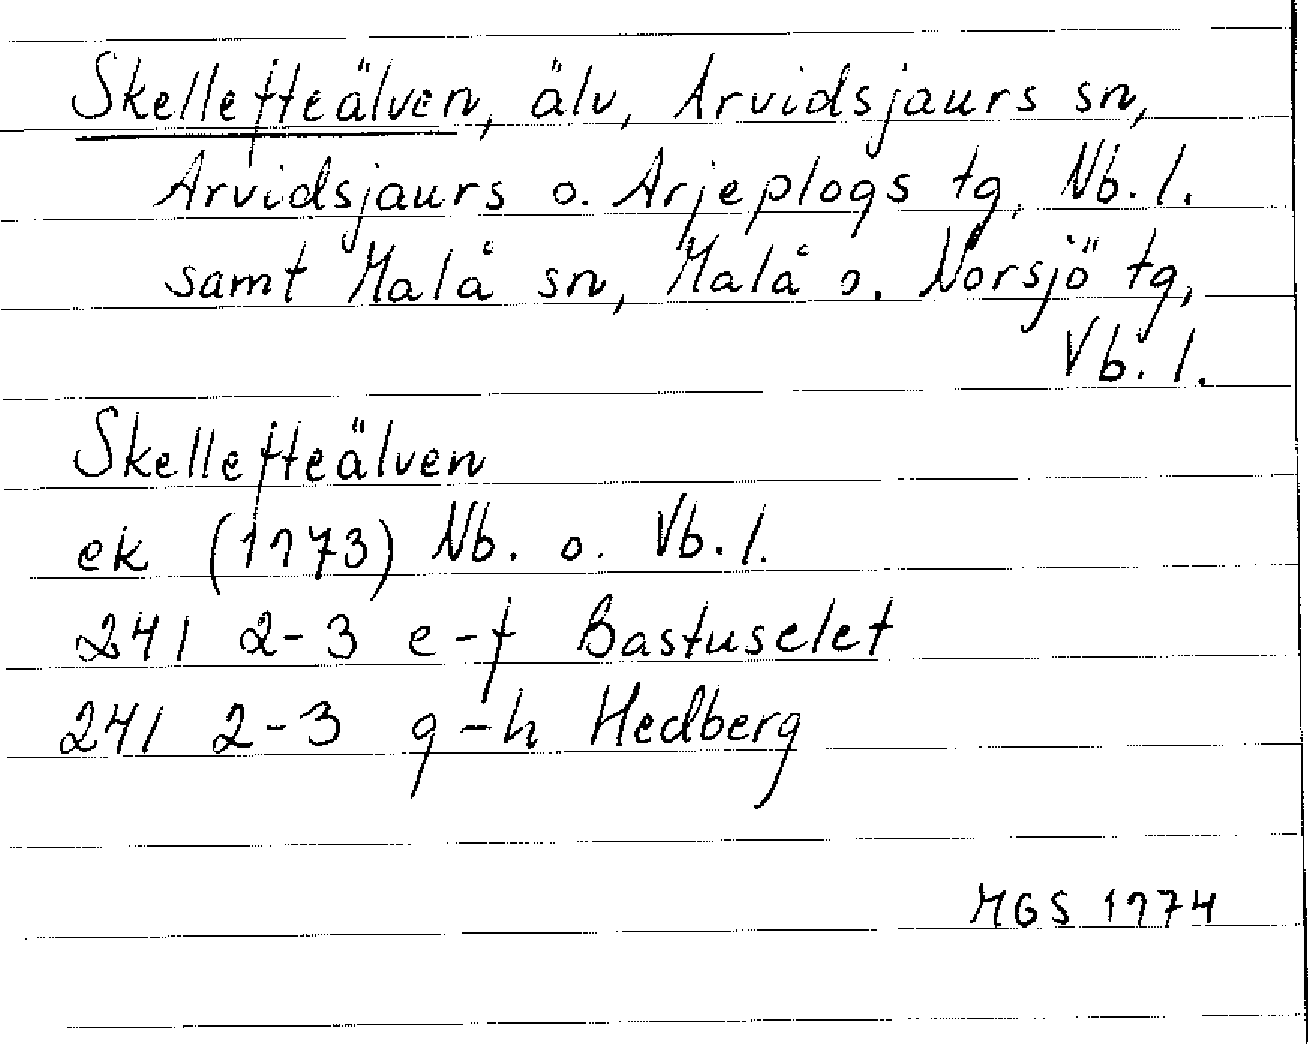 Skellefteälven, älv, Arvidsjaurs sn,
Arvidsjaurs o. Arjeplogs tg, Nb. l.
samt Malå sn, Malå o. Norsjö tg,
Vb. l.
Skellefteälven
ek (1973) Nb. o. Vb. l.
241 2-3 e-f Bastuselet
241 2-3 g-h Hedberg
MGS 1974